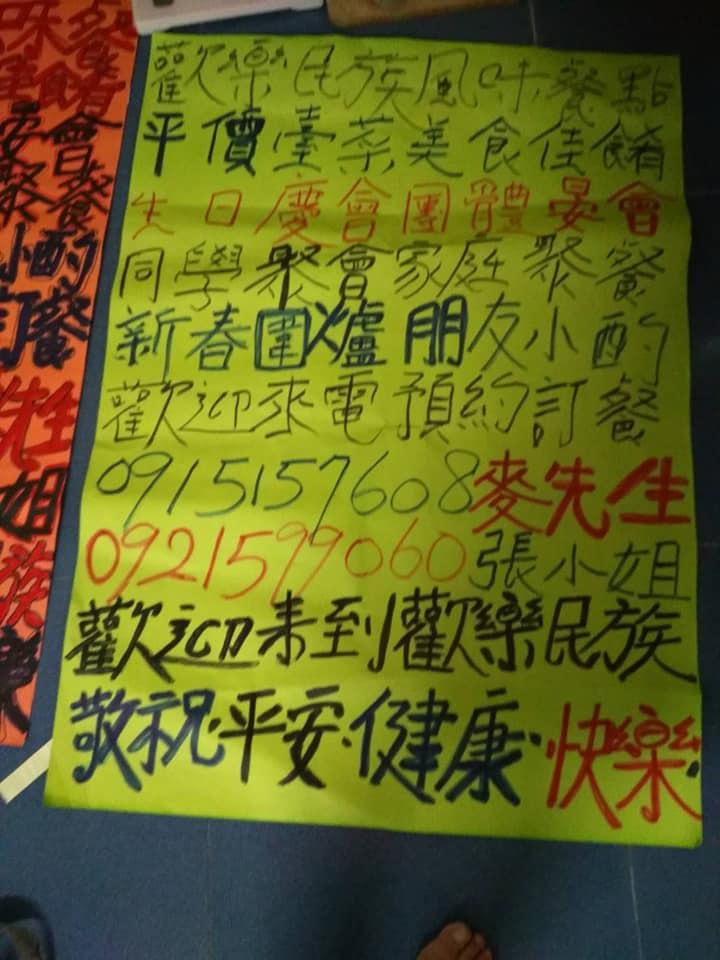 歡樂民族風味餐點
平價臺菜美食佳餚
生日慶會團體宴會
同學聚會家庭聚餐
新春圍爐朋友小酌
歡迎來電預約訂餐
0915157608麥先生
0921599060張小姐
歡迎来到歡樂民族
敬祝·平安·健康·快樂·
味餐
佳餚
宴會
聚餐
小酌
訂餐
先生
姐
族
樂